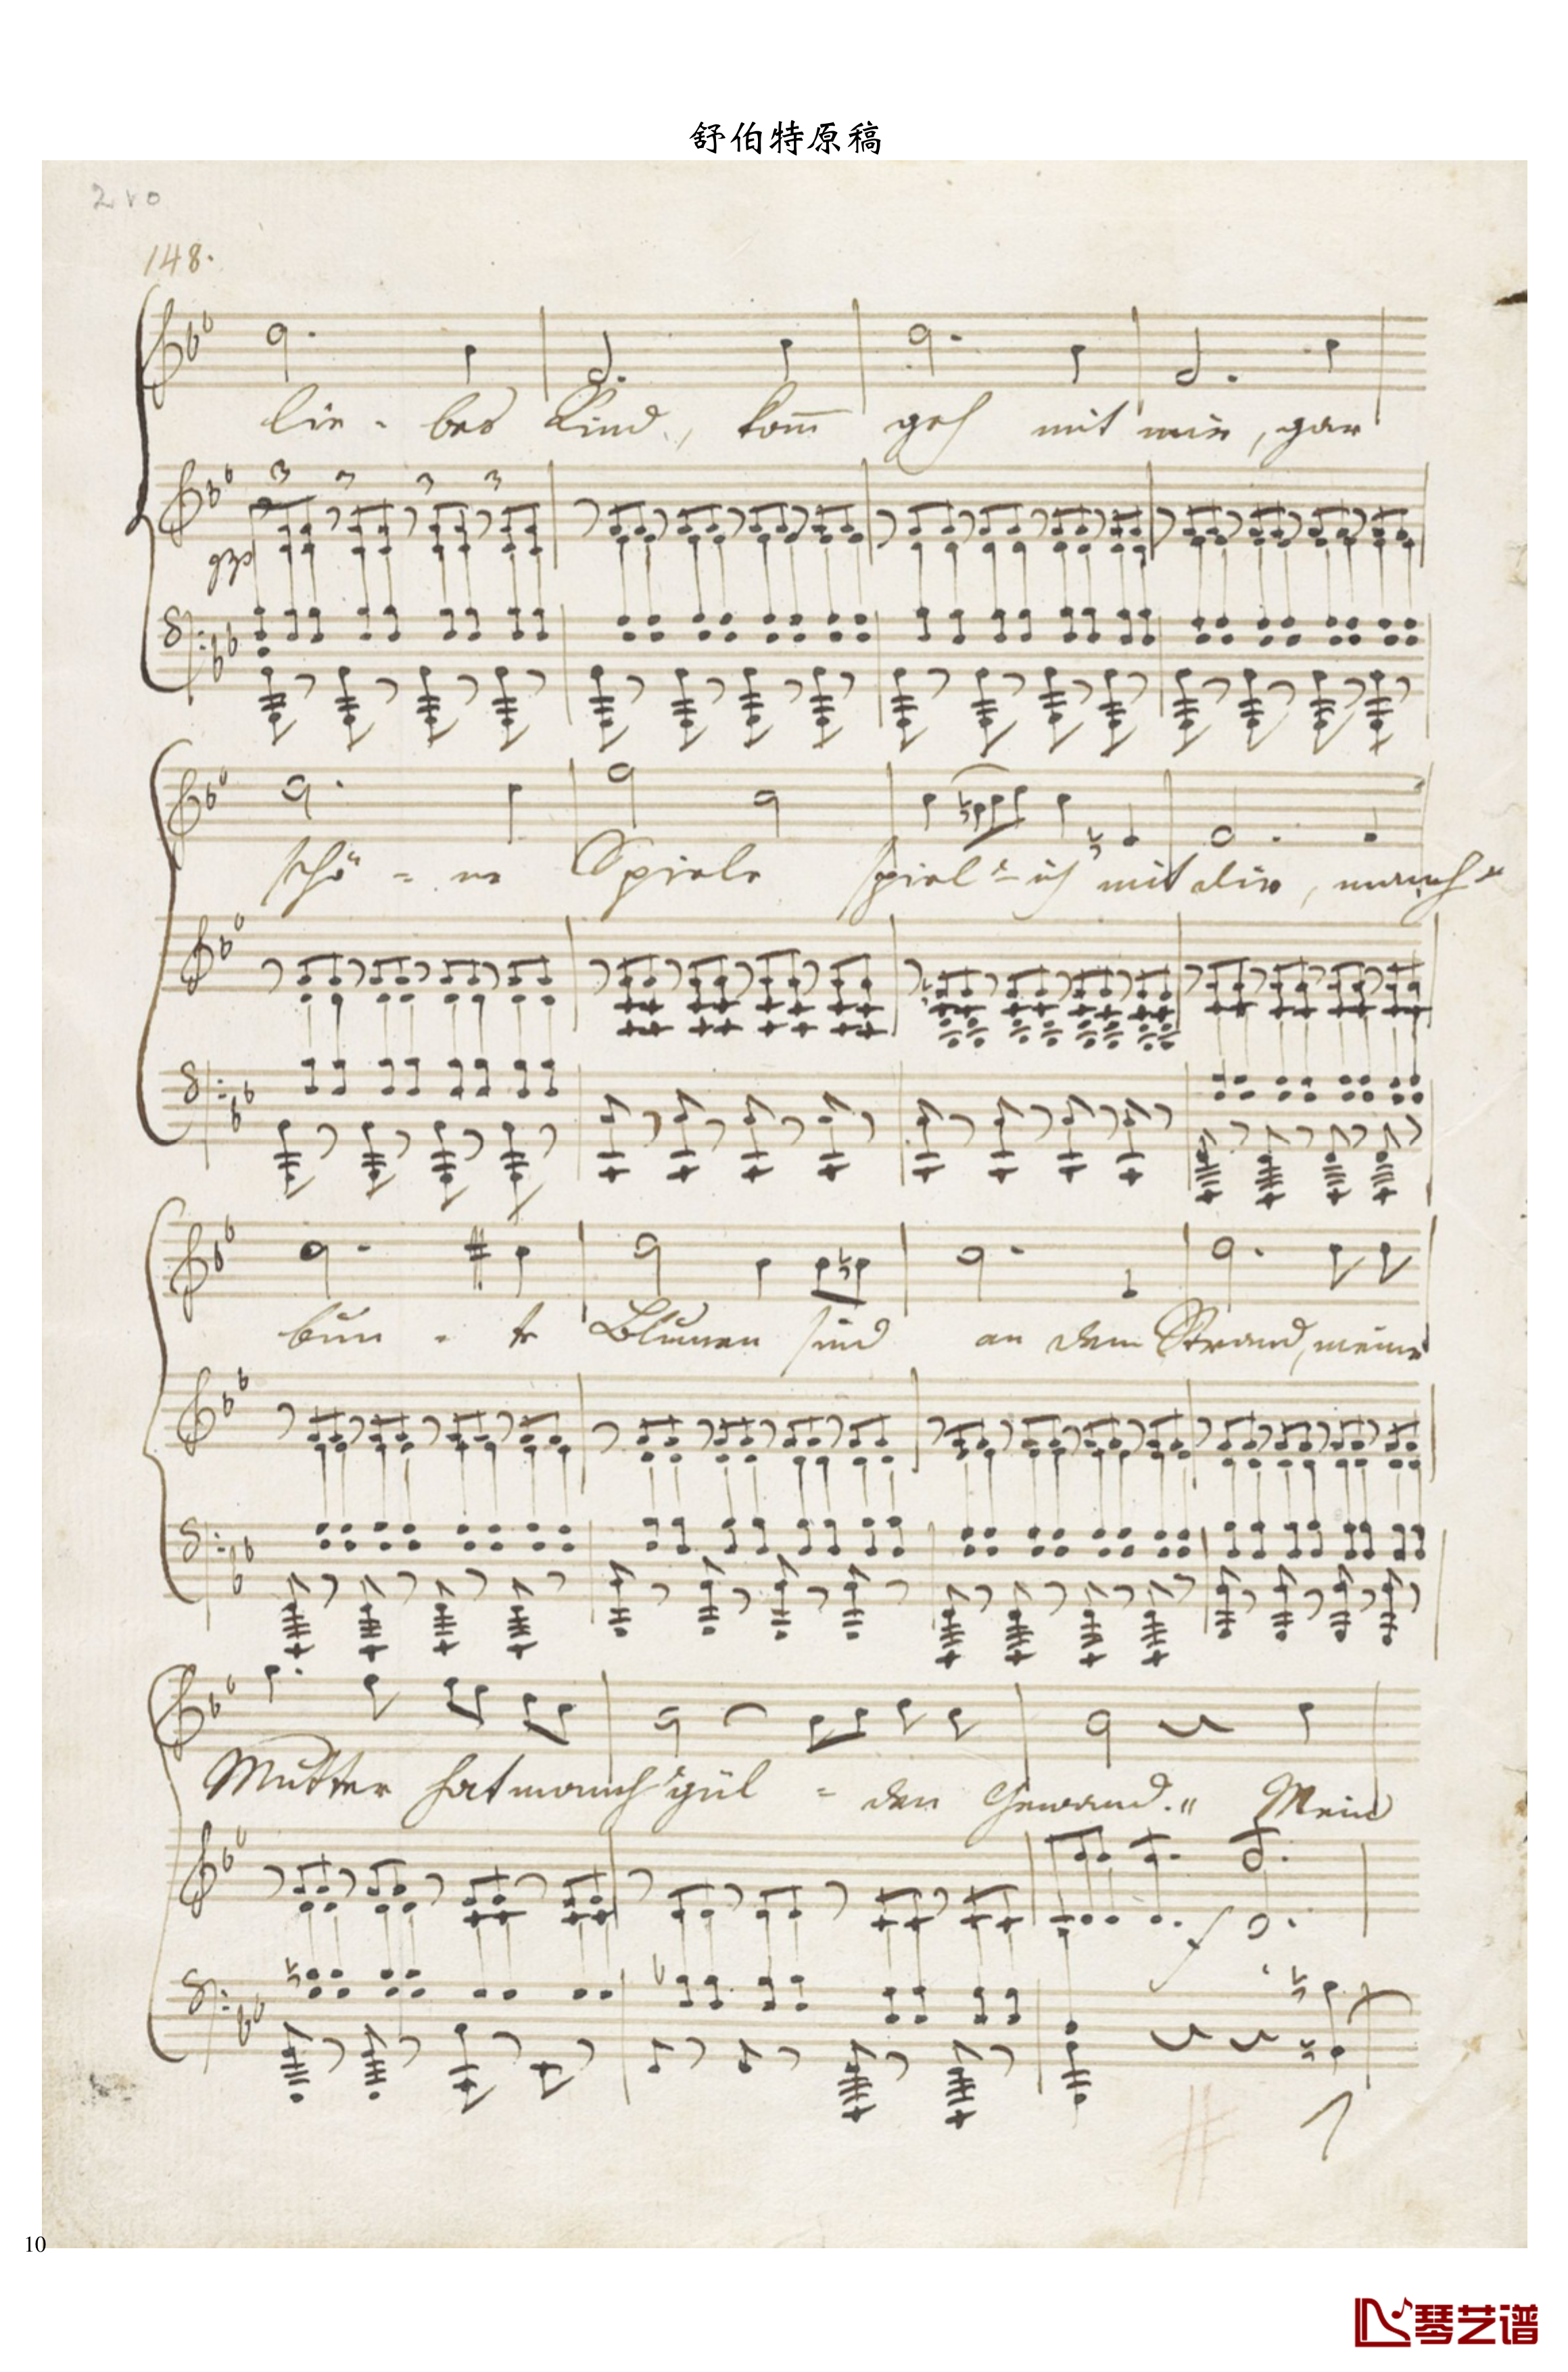 舒伯特原稿
210
148.
lie - bes Kind, kom̅ geh mit mir, gar
3 3 3 3
schö = ne Spiele spiel' = ich mit dir, manch'
bun - te Blumen sind an dem Strand, meine
Mutter hat manch' gül = den Gewand." Mein
f
10
琴艺谱